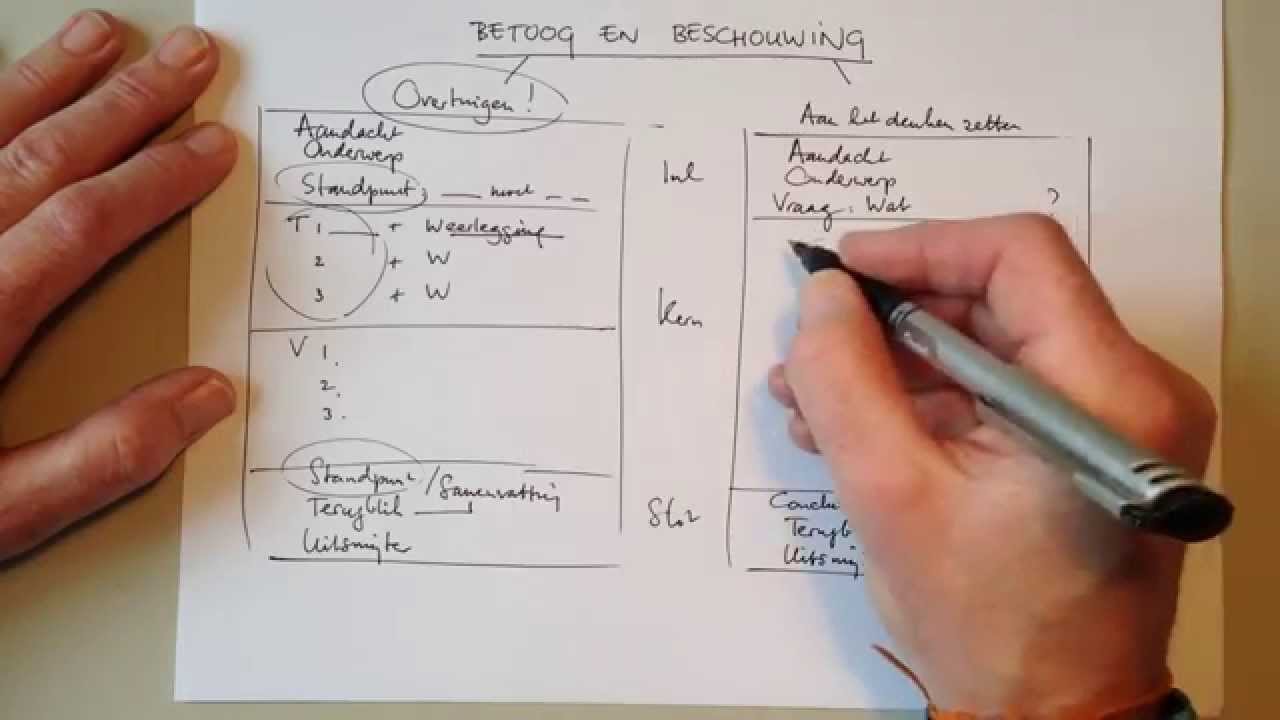 BETOOG EN BESCHOUWING
Overtuigen!
Aandacht
Onderwerp
Standpunt; __ moet _ _
T 1 __ + Weerlegging
2 + W
3 + W
V 1.
2.
3.
Standpunt / Samenvatting
Terugblik
Uitsmijter
Inl
Kern
Slot
Aan het denken zetten
Aandacht
Onderwerp
Vraag: Wat ?
Conclu
Terugb
Uitsmij